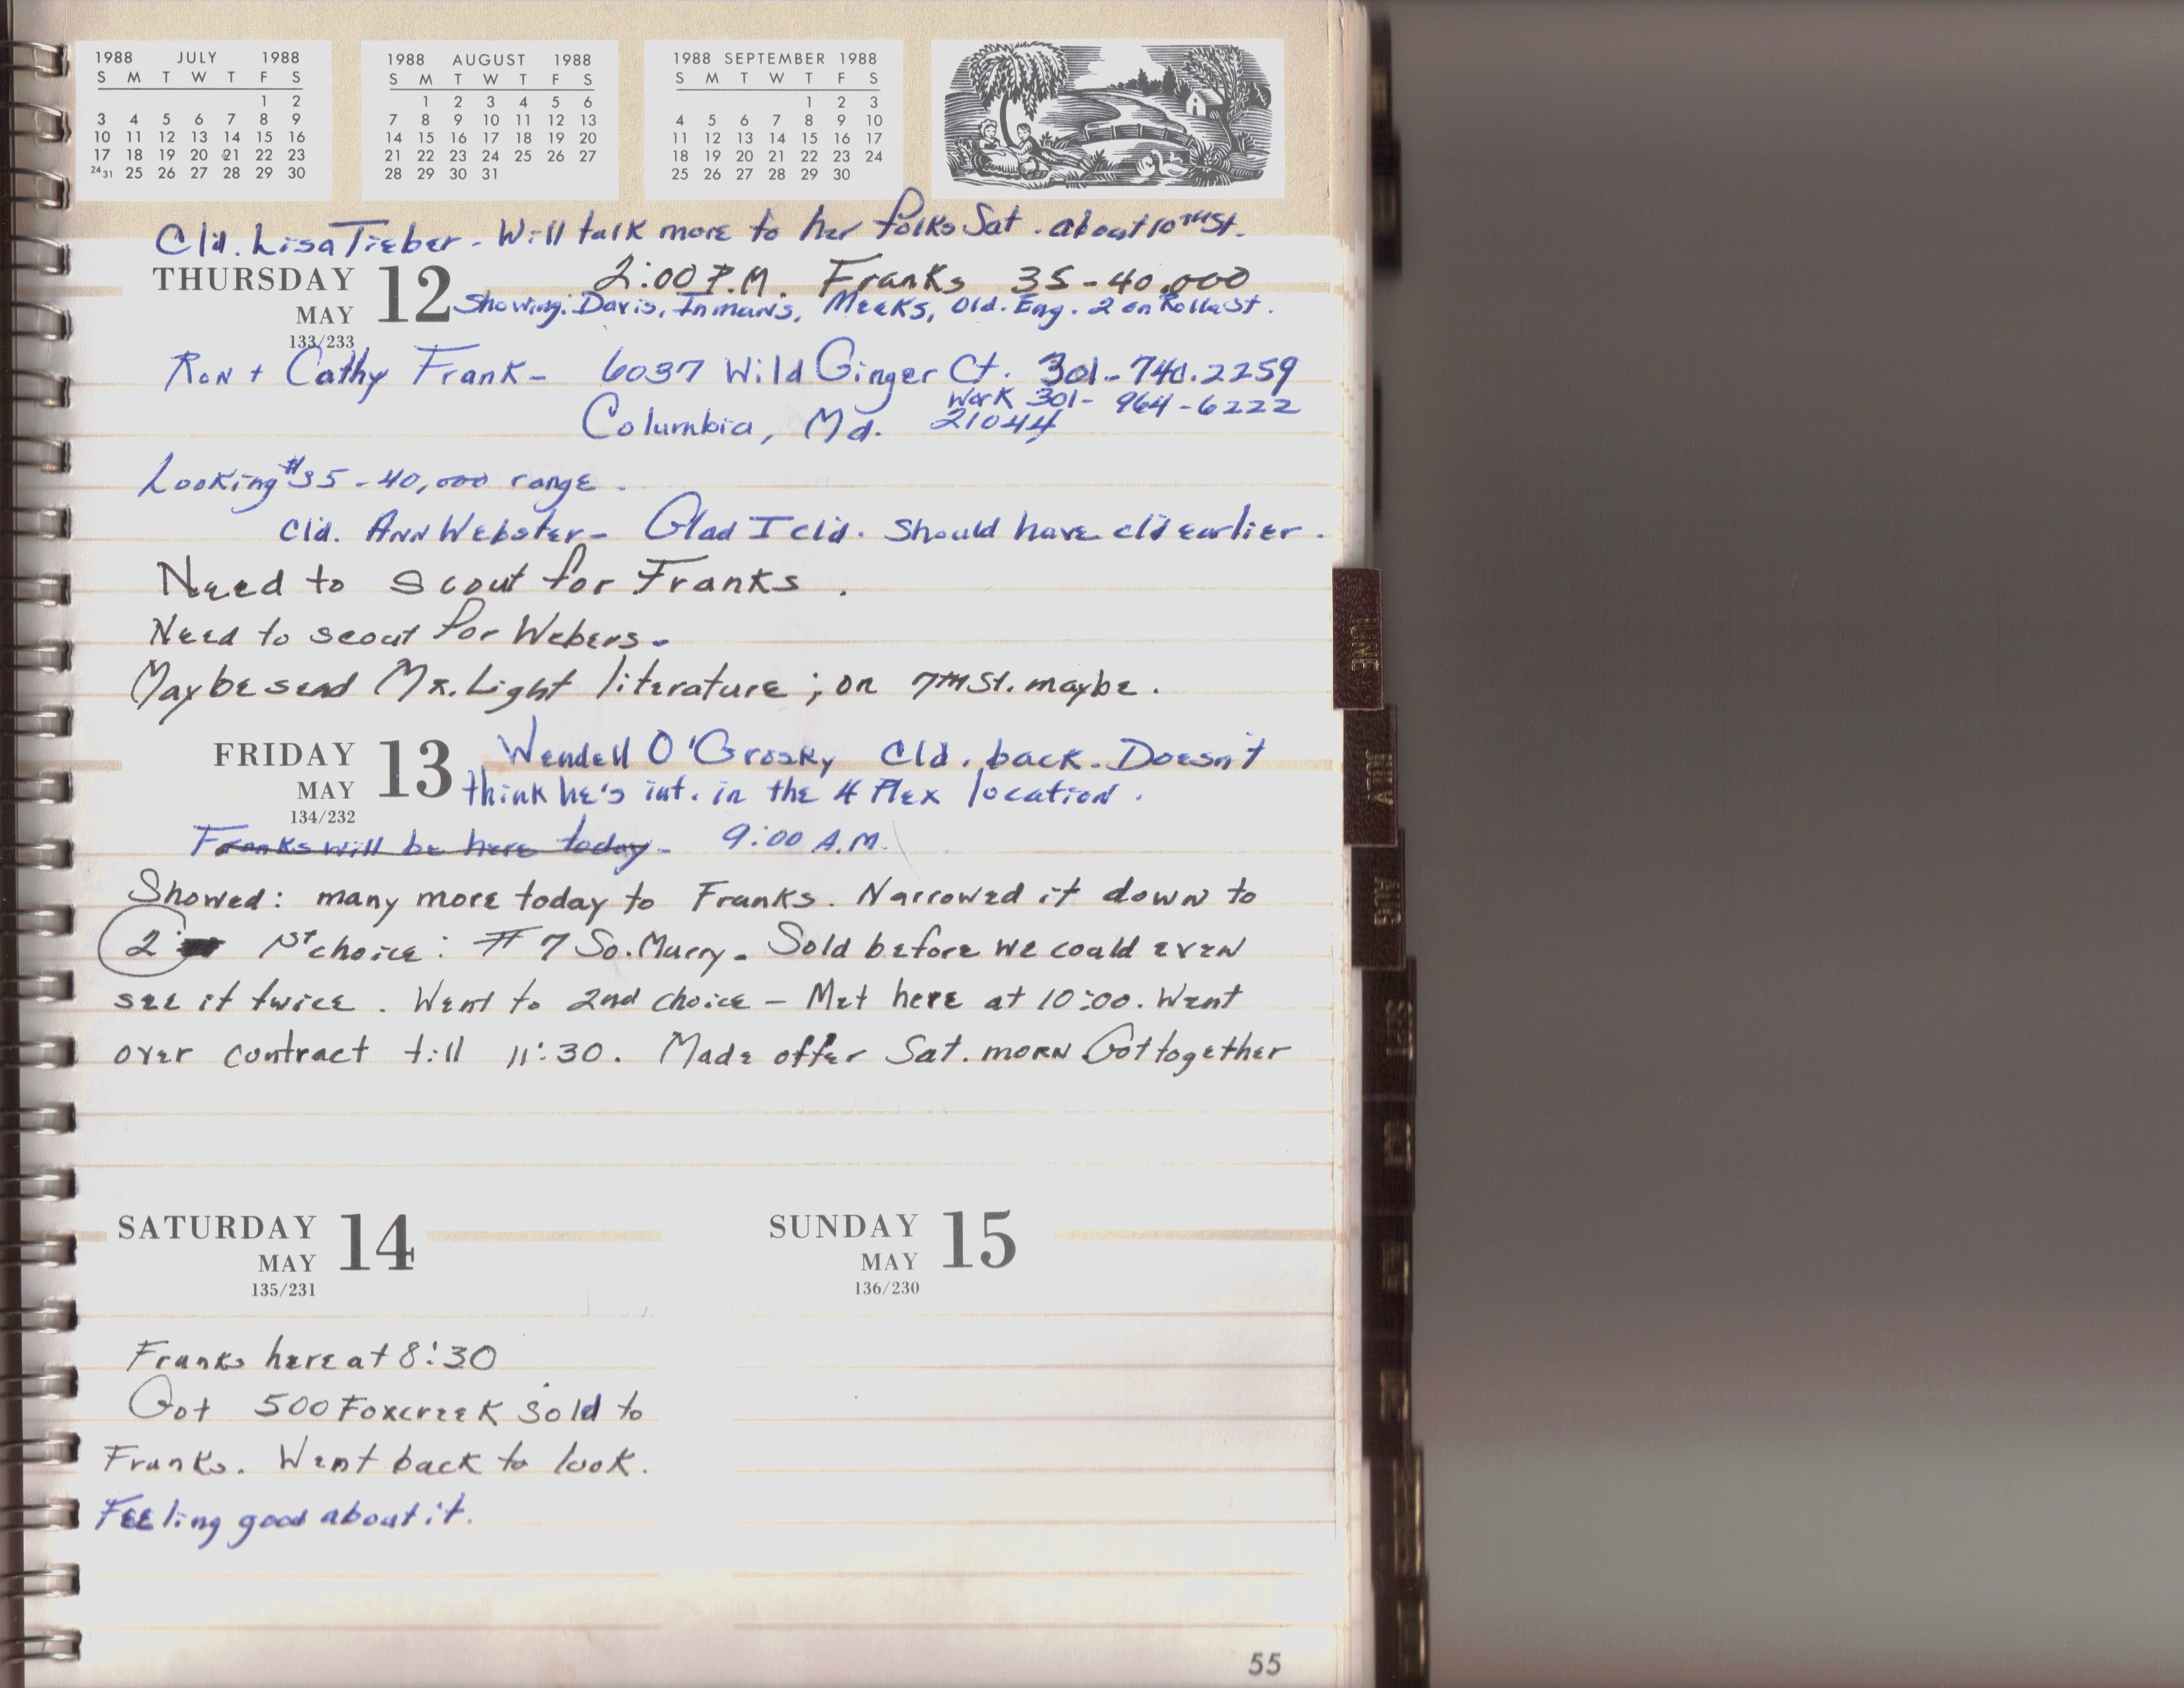 1988 JULY 1988
S M T W T F S
1 2
3 4 5 6 7 8 9
10 11 12 13 14 15 16
17 18 19 20 21 22 23
24 31 25 26 27 28 29 30
1988 AUGUST 1988
S M T W T F S
1 2 3 4 5 6
7 8 9 10 11 12 13
14 15 16 17 18 19 20
21 22 23 24 25 26 27
28 29 30 31
1988 SEPTEMBER 1988
S M T W T F S
1 2 3
4 5 6 7 8 9 10
11 12 13 14 15 16 17
18 19 20 21 22 23 24
25 26 27 28 29 30
Cld. Lisa Tieber - Will talk more to her folks Sat. about 10th St.
THURSDAY 12 2:00 P.M. Franks 35-40,000
MAY Showing: Davis, Inmans, Meeks, Old. Eng. 2 on Rolla St.
133/233
Ron + Cathy Frank - 6037 Wild Ginger Ct. 301-740.2259
Work 301-964-6222
Columbia, Md. 21044
Looking $35-40,000 range.
Cld. Ann Webster - Glad I cld. Should have cld earlier.
Need to scout for Franks.
Need to scout for Webers.
Maybe send Mr. Light literature; on 7th St. maybe.
FRIDAY 13 Wendell O'Grosky Cld. back. Doesn't
MAY think he's int. in the 4 Plex location.
134/232
Franks will be here today - 9:00 A.M.
Showed: many more today to Franks. Narrowed it down to
2 1st choice: #7 So. Murry - Sold before we could even
see it twice. Went to 2nd choice - Met here at 10:00. Went
over contract till 11:30. Made offer Sat. morn Got together
SATURDAY 14
MAY
135/231
SUNDAY 15
MAY
136/230
Franks here at 8:30
Got 500 Foxcreek sold to
Franks. Went back to look.
Feeling good about it.
55
JUNE
JULY
AUG
SEPT